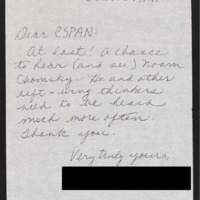 Dear CSPAN,
At last! A chance
to hear (and see) Noam
Chomsky. He and other
left-wing thinkers
need to be heard
much more often.
Thank you.
Very truly yours,